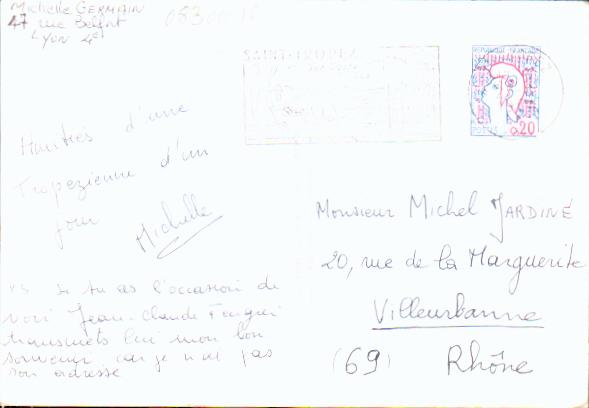 Michelle GERMAIN
47 rue Belfort
LYON 4e
SAINT-TROPEZ
REPUBLIQUE FRANCAISE
POSTES 0,20
d'une
Tropezienne d'un
jour
Michelle
Monsieur Michel JARDINÉ
20, rue de la Marguerite
Villeurbanne
(69) Rhône
PS si tu as l'occasion de
voir Jean-Claude
transmets lui mon bon
souvenir car je n'ai pas
son adresse